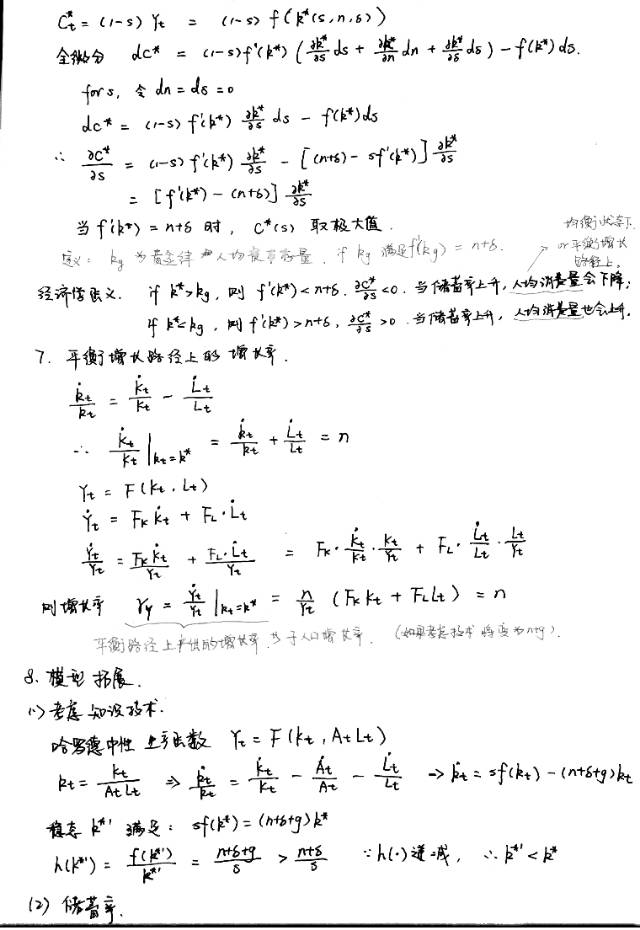 C*t = (1-s) yt = (1-s) f(k*(s,n,δ))
全微分 dc* = (1-s)f'(k*) (∂k*/∂s ds + ∂k*/∂n dn + ∂k*/∂δ dδ) - f(k*)ds.
for s, 令 dn = dδ = 0
dc* = (1-s) f'(k*) ∂k*/∂s ds - f(k*)ds
∴ ∂c*/∂s = (1-s) f'(k*) ∂k*/∂s - [(n+δ) - sf'(k*)] ∂k*/∂s
= [f'(k*) - (n+δ)] ∂k*/∂s
当 f'(k*) = n+δ 时, c*(s) 取极大值.
均衡状态下.
or 平衡增长
路径上.
定义: kg 为黄金律 人均资本存量. if kg 满足 f'(kg) = n+δ.
经济学意义. if k*>kg, 则 f'(k*) < n+δ. ∂c*/∂s <0. 当储蓄率上升, 人均消费量会下降;
if k*<kg, 则 f'(k*) > n+δ, ∂c*/∂s >0. 当储蓄率上升, 人均消费量也会上升.
7. 平衡增长路径上的增长率.
k̇t/kt = K̇t/Kt - L̇t/Lt
∴ K̇t/Kt |kt=k* = k̇t/kt + L̇t/Lt = n
Yt = F(Kt, Lt)
Ẏt = FK K̇t + FL·L̇t
Ẏt/Yt = FK K̇t/Yt + FL·L̇t/Yt = FK· K̇t/Kt · Kt/Yt + FL· L̇t/Lt · Lt/Yt
则增长率 γy = Ẏt/Yt |kt=k* = n/Yt (FK Kt + FL Lt) = n
平衡路径上 的增长率 等于人口增长率. (如果考虑技术 将变为n+g).
8. 模型拓展.
(1) 考虑知识技术.
哈罗德中性 生产函数 Yt = F(Kt, AtLt)
kt = Kt/AtLt ⇒ k̇t/kt = K̇t/Kt - Ȧt/At - L̇t/Lt ⇒ k̇t = sf(kt) - (n+δ+g)kt
稳态 k*' 满足: sf(k*) = (n+δ+g)k*
h(k*') = f(k*')/k*' = n+δ+g/s > n+δ/s ∵ h(·)递减, ∴ k*' < k*
(2) 储蓄率.